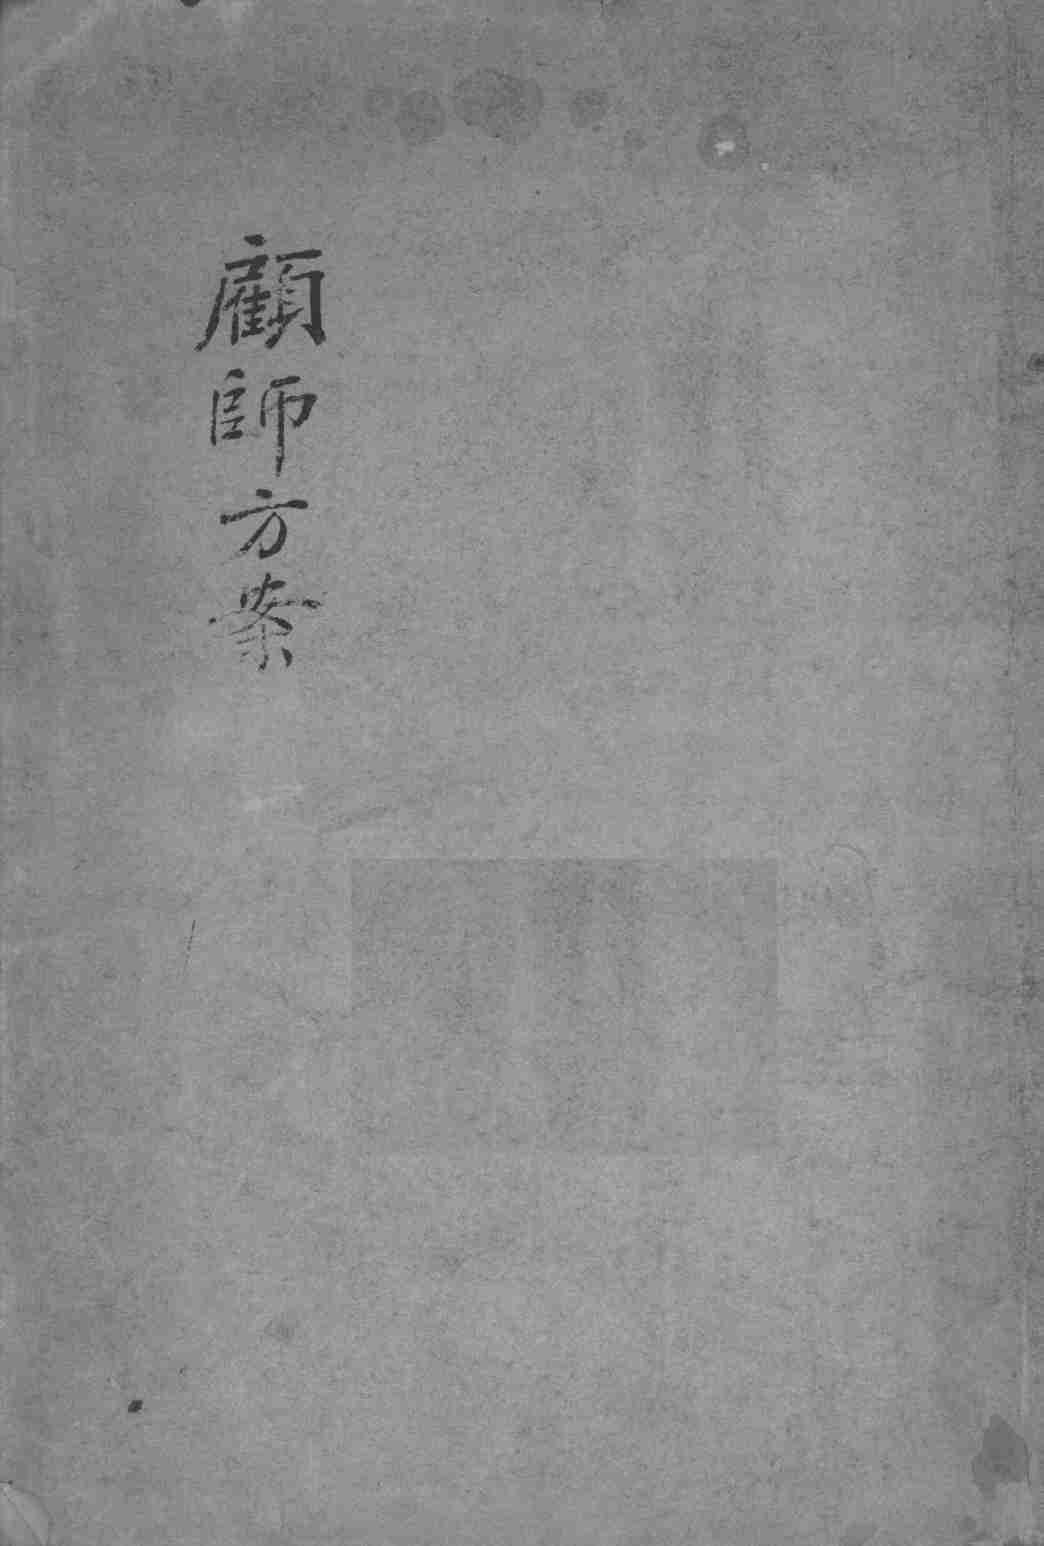 顧師方案